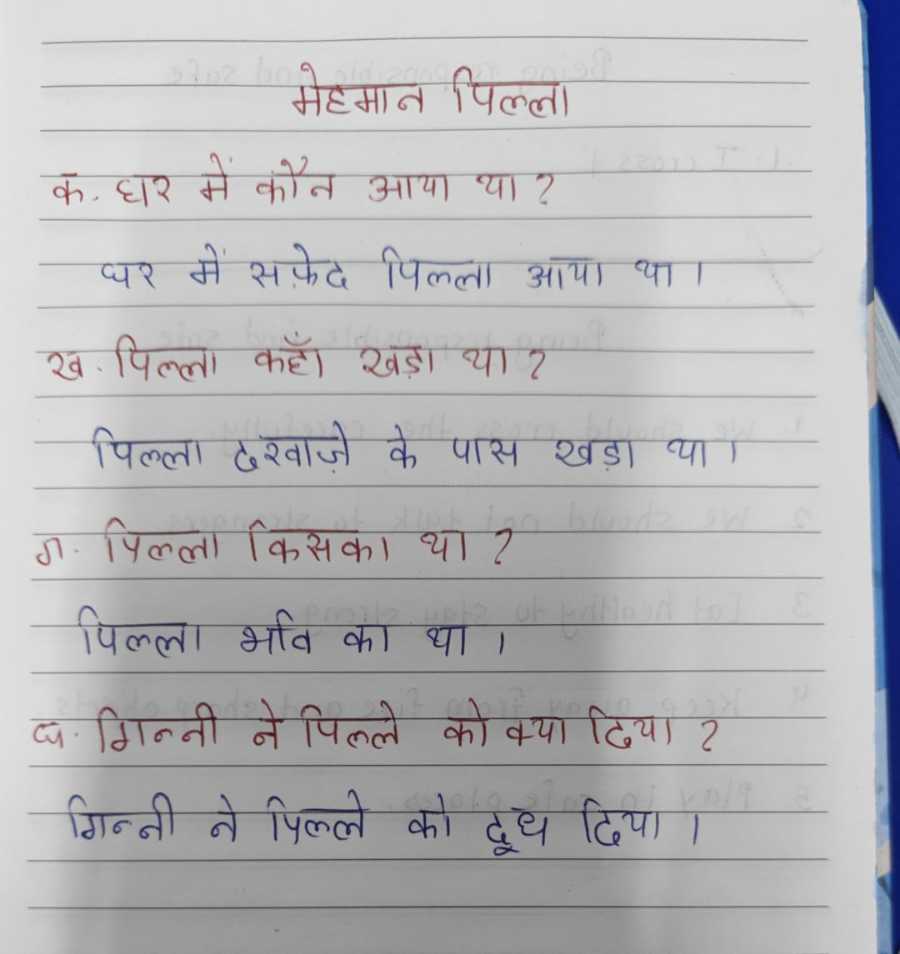 मेहमान पिल्ला
क. घर में कौन आया था ?
घर में सफ़ेद पिल्ला आया था ।
ख. पिल्ला कहाँ खड़ा था ?
पिल्ला दरवाज़े के पास खड़ा था ।
ग. पिल्ला किसका था ?
पिल्ला भवि का था ।
घ. गिन्नी ने पिल्ले को क्या दिया ?
गिन्नी ने पिल्ले को दूध दिया ।